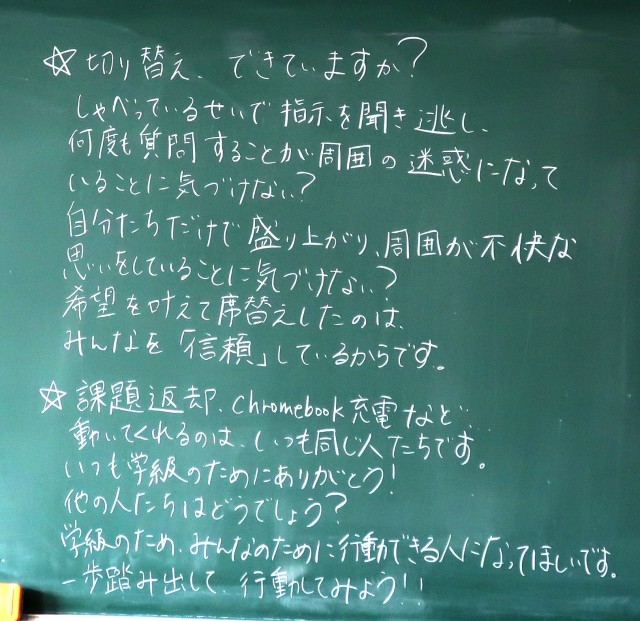 ☆切り替え、できていますか?
しゃべっているせいで指示を聞き逃し、
何度も質問することが周囲の迷惑になって
いることに気づけない?
自分たちだけで盛り上がり、周囲が不快な
思いをしていることに気づけない?
希望を叶えて席替えしたのは、
みんなを「信頼」しているからです。
☆課題返却、Chromebook充電など…
動いてくれるのは、いつも同じ人たちです。
いつも学級のためにありがとう!
他の人たちはどうでしょう?
学級のため、みんなのために行動できる人になってほしいです。
一歩踏み出して、行動してみよう!!